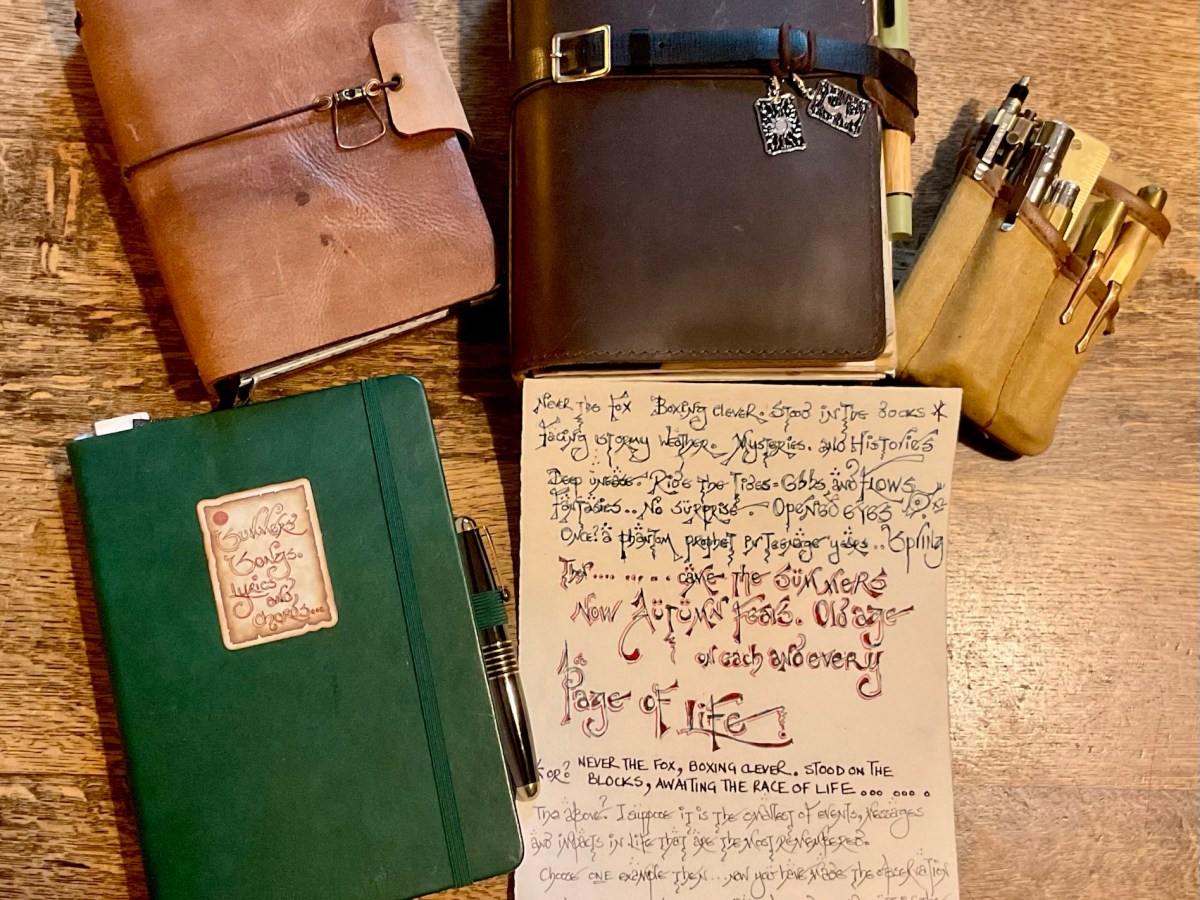 Summers
Songs.
Lyrics
and,
chords...
Never the Fox Boxing clever. Stood in The Books
Facing stormy weather. Mysteries. and Histories
Deep unease. Ride the Tides = Ebbs and flows
Fantasies.. No surprise.. Opened eyes
Once? a phantom prophet in Teenage years.. Spring
Then.......... came the Summers
Now Autumn feels. Old age
on each and every
Page of Life
Or? NEVER THE FOX, BOXING CLEVER. STOOD ON THE
BLOCKS, AWAITING THE RACE OF LIFE ... ... .
The above? I suppose it is the smallest of events, Messages
and impacts in Life that are the most remembered.
Choose ONE example then... now you have made the observation